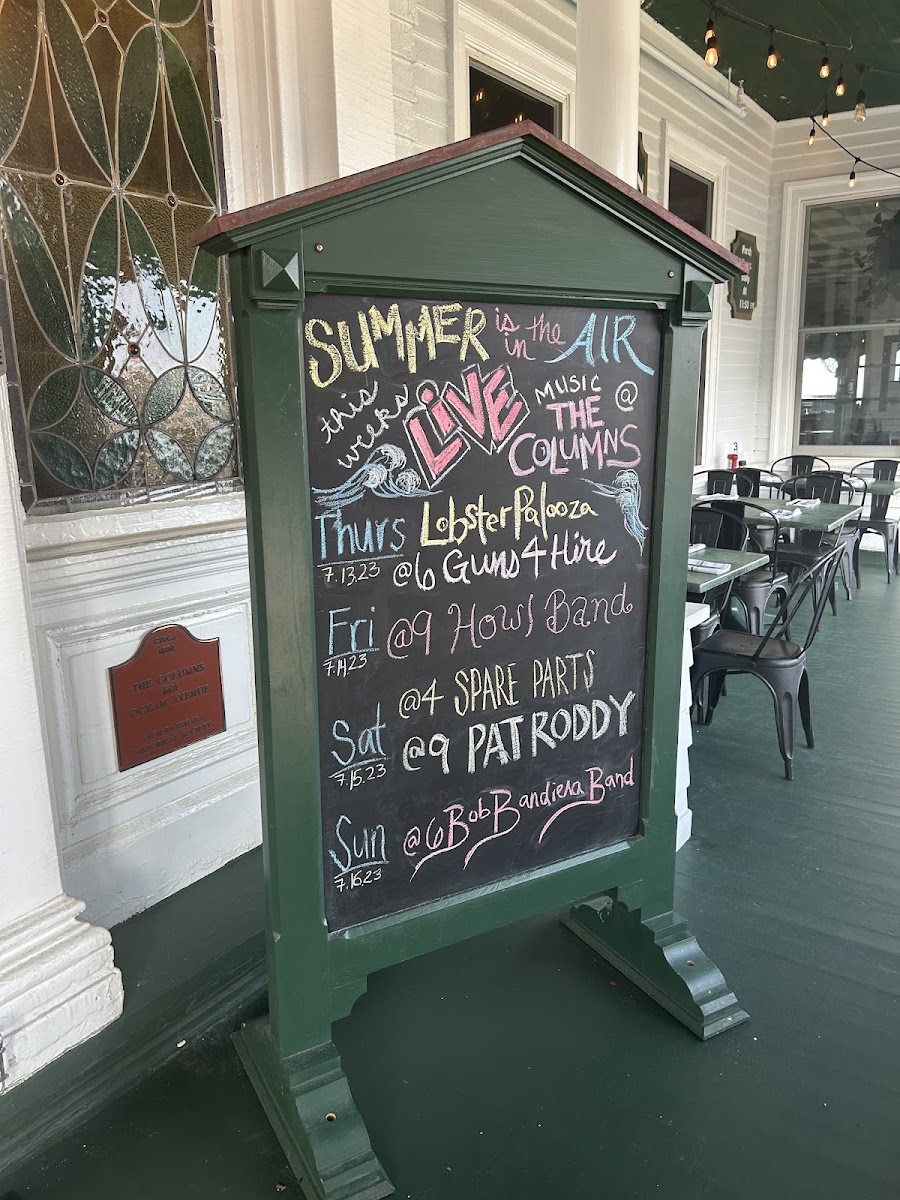 SUMMER is in the AIR
this weeks LIVE MUSIC @ THE COLUMNS
Thurs 7.13.23 LobsterPalooza
@6 Guns4Hire
Fri 7.14.23 @9 Howl Band
@4 SPARE PARTS
Sat 7.15.23 @9 PAT RODDY
Sun 7.16.23 @6 Bob Bandiera Band
CIRCA
THE COLUMNS
601
OCEAN AVENUE
HISTORICAL SOCIETY
Porch
3